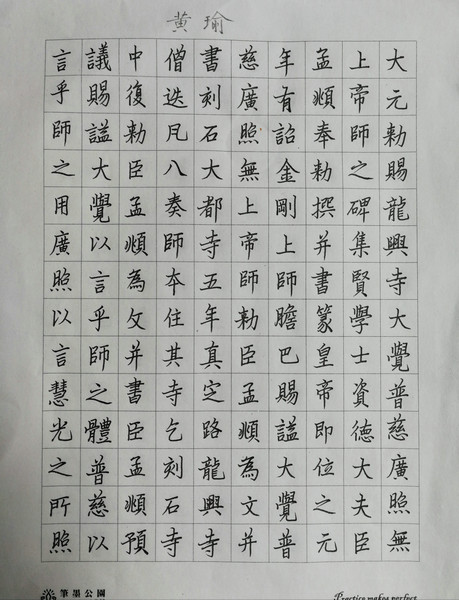 黄瑜
大元勅賜龍興寺大覺普慈廣照無
上帝師之碑集賢學士資德大夫臣
孟頫奉勅撰并書篆皇帝即位之元
年有詔金剛上師膽巴賜謚大覺普
慈廣照無上帝師勅臣孟頫為文并
書刻石大都寺五年真定路龍興寺
僧迭凡八奏師夲住其寺乞刻石寺
中復勅臣孟頫為文并書臣孟頫預
議賜謚大覺以言乎師之體普慈以
言乎師之用廣照以言慧光之所照
筆墨公園
Practice makes perfect